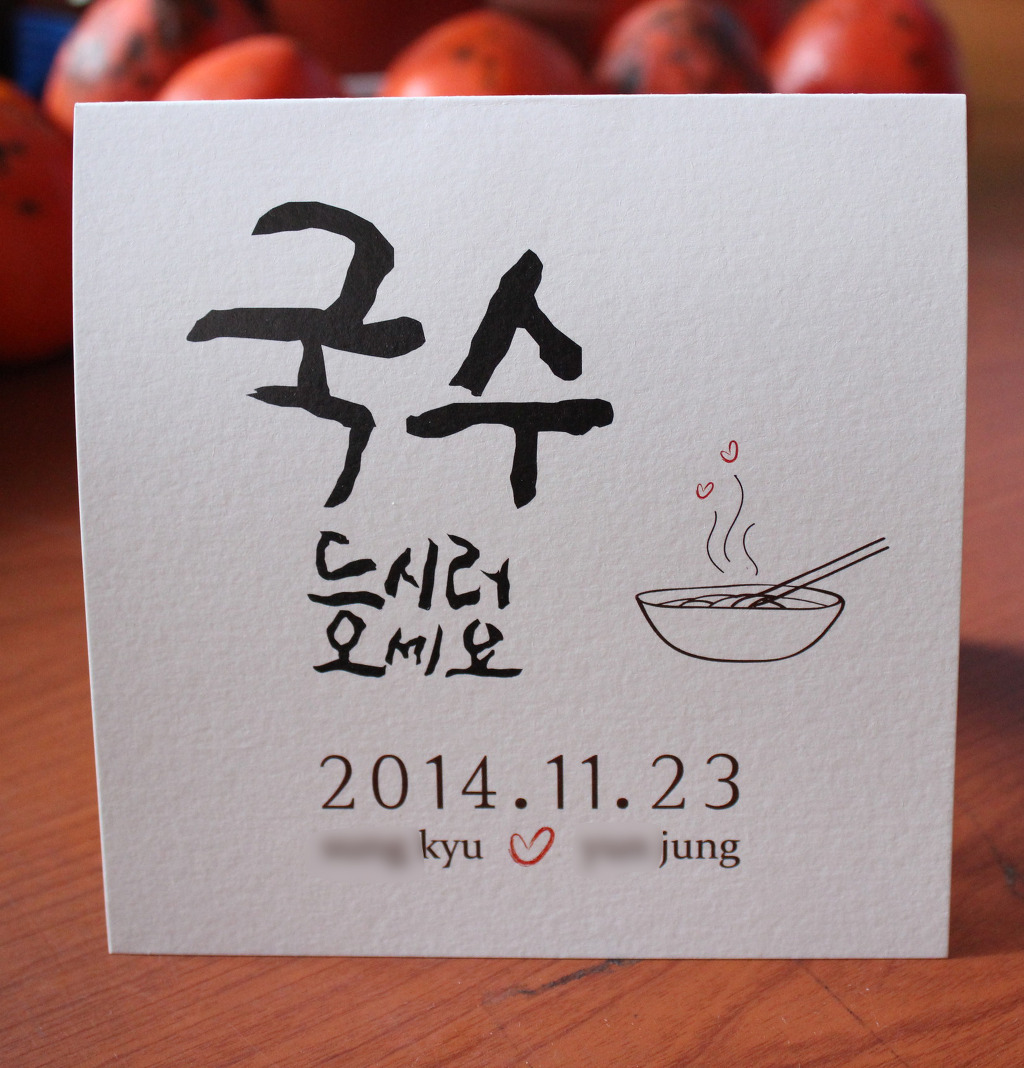 국수
드시러
오세요
2014.11.23
kyu jung